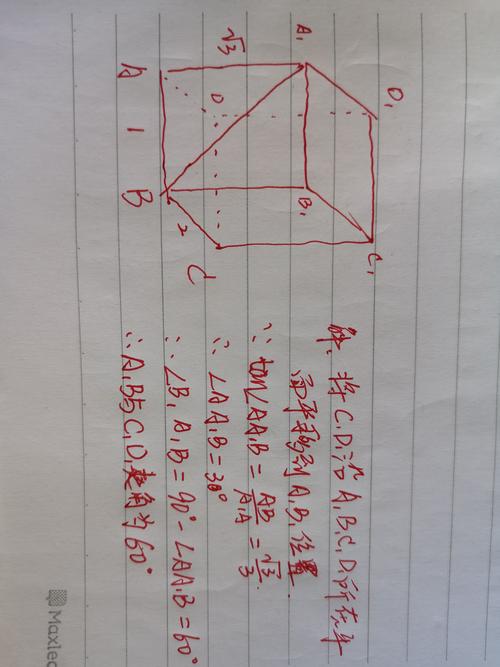 A₁
D₁
√3
A
D
1
B
B₁
2
C
C₁
解：将C₁D₁沿A₁B₁C₁D₁所在平
面平移到A₁B₁位置.
∵ tan∠AA₁B = AB/A₁A = √3/3
∴ ∠AA₁B = 30°
∴ ∠B₁A₁B = 90° - ∠AA₁B = 60°
∴ A₁B与C₁D₁夹角为60°
Maxlea